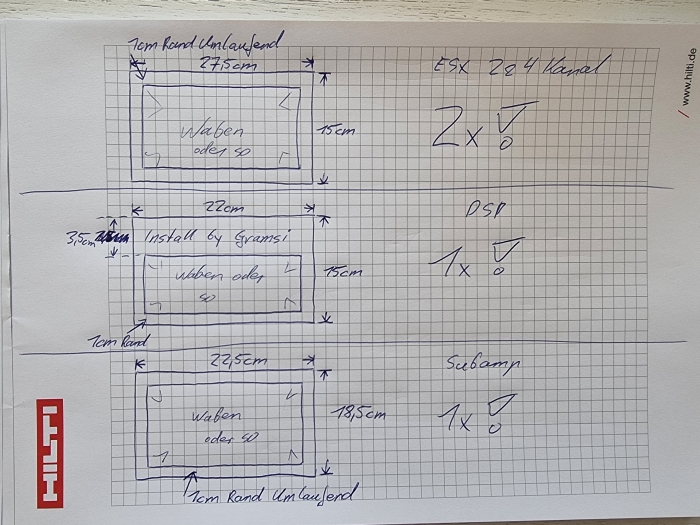 1cm Rand Umlaufend
27,5cm
ESX 2&4 Kanal
Waben
oder so
15cm
2x
/ www.hilti.de
22cm
DSP
3,5cm
Install by Gramsi
waben oder
so
15cm
1x
1cm Rand
22,5cm
Subamp
Waben
oder so
18,5cm
1x
1cm Rand Umlaufend
HILTI